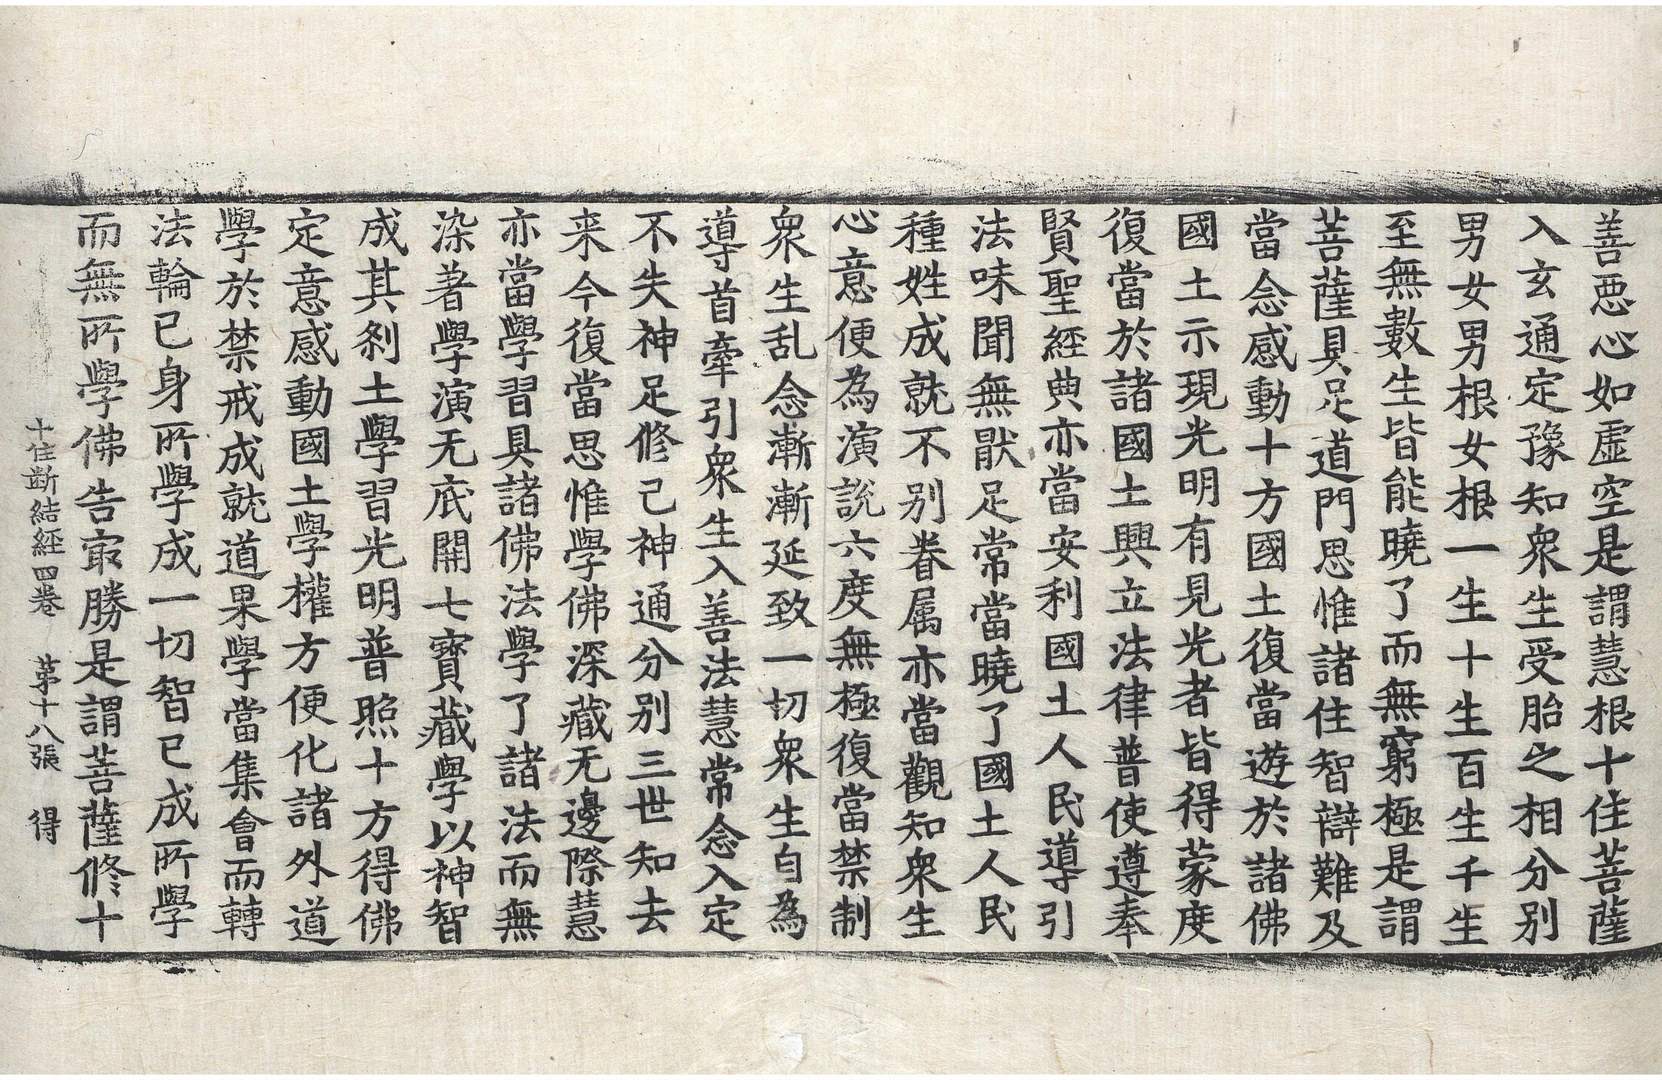 善惡心如虛空是謂慧根十住菩薩
入玄通定豫知衆生受胎之相分別
男女男根女根一生十生百生千生
至無數生皆能曉了而無窮極是謂
菩薩具足道門思惟諸住智辯難及
當念感動十方國土復當遊於諸佛
國土示現光明有見光者皆得蒙度
復當於諸國土興立法律普使遵奉
賢聖經典亦當安利國土人民導引
法味聞無猒足常當曉了國土人民
種姓成就不別眷属亦當觀知衆生
心意便為演說六度無極復當禁制
衆生乱念漸漸延致一切衆生自為
導首牽引衆生入善法慧常念入定
不失神足修己神通分別三世知去
来今復當思惟學佛深藏无邊際慧
亦當學習具諸佛法學了諸法而無
染著學演无底開七寶藏學以神智
成其剎土學習光明普照十方得佛
定意感動國土學權方便化諸外道
學於禁戒成就道果學當集會而轉
法輪已身所學成一切智已成所學
而無所學佛告最勝是謂菩薩修十
十住断結經四卷　苐十八張　得